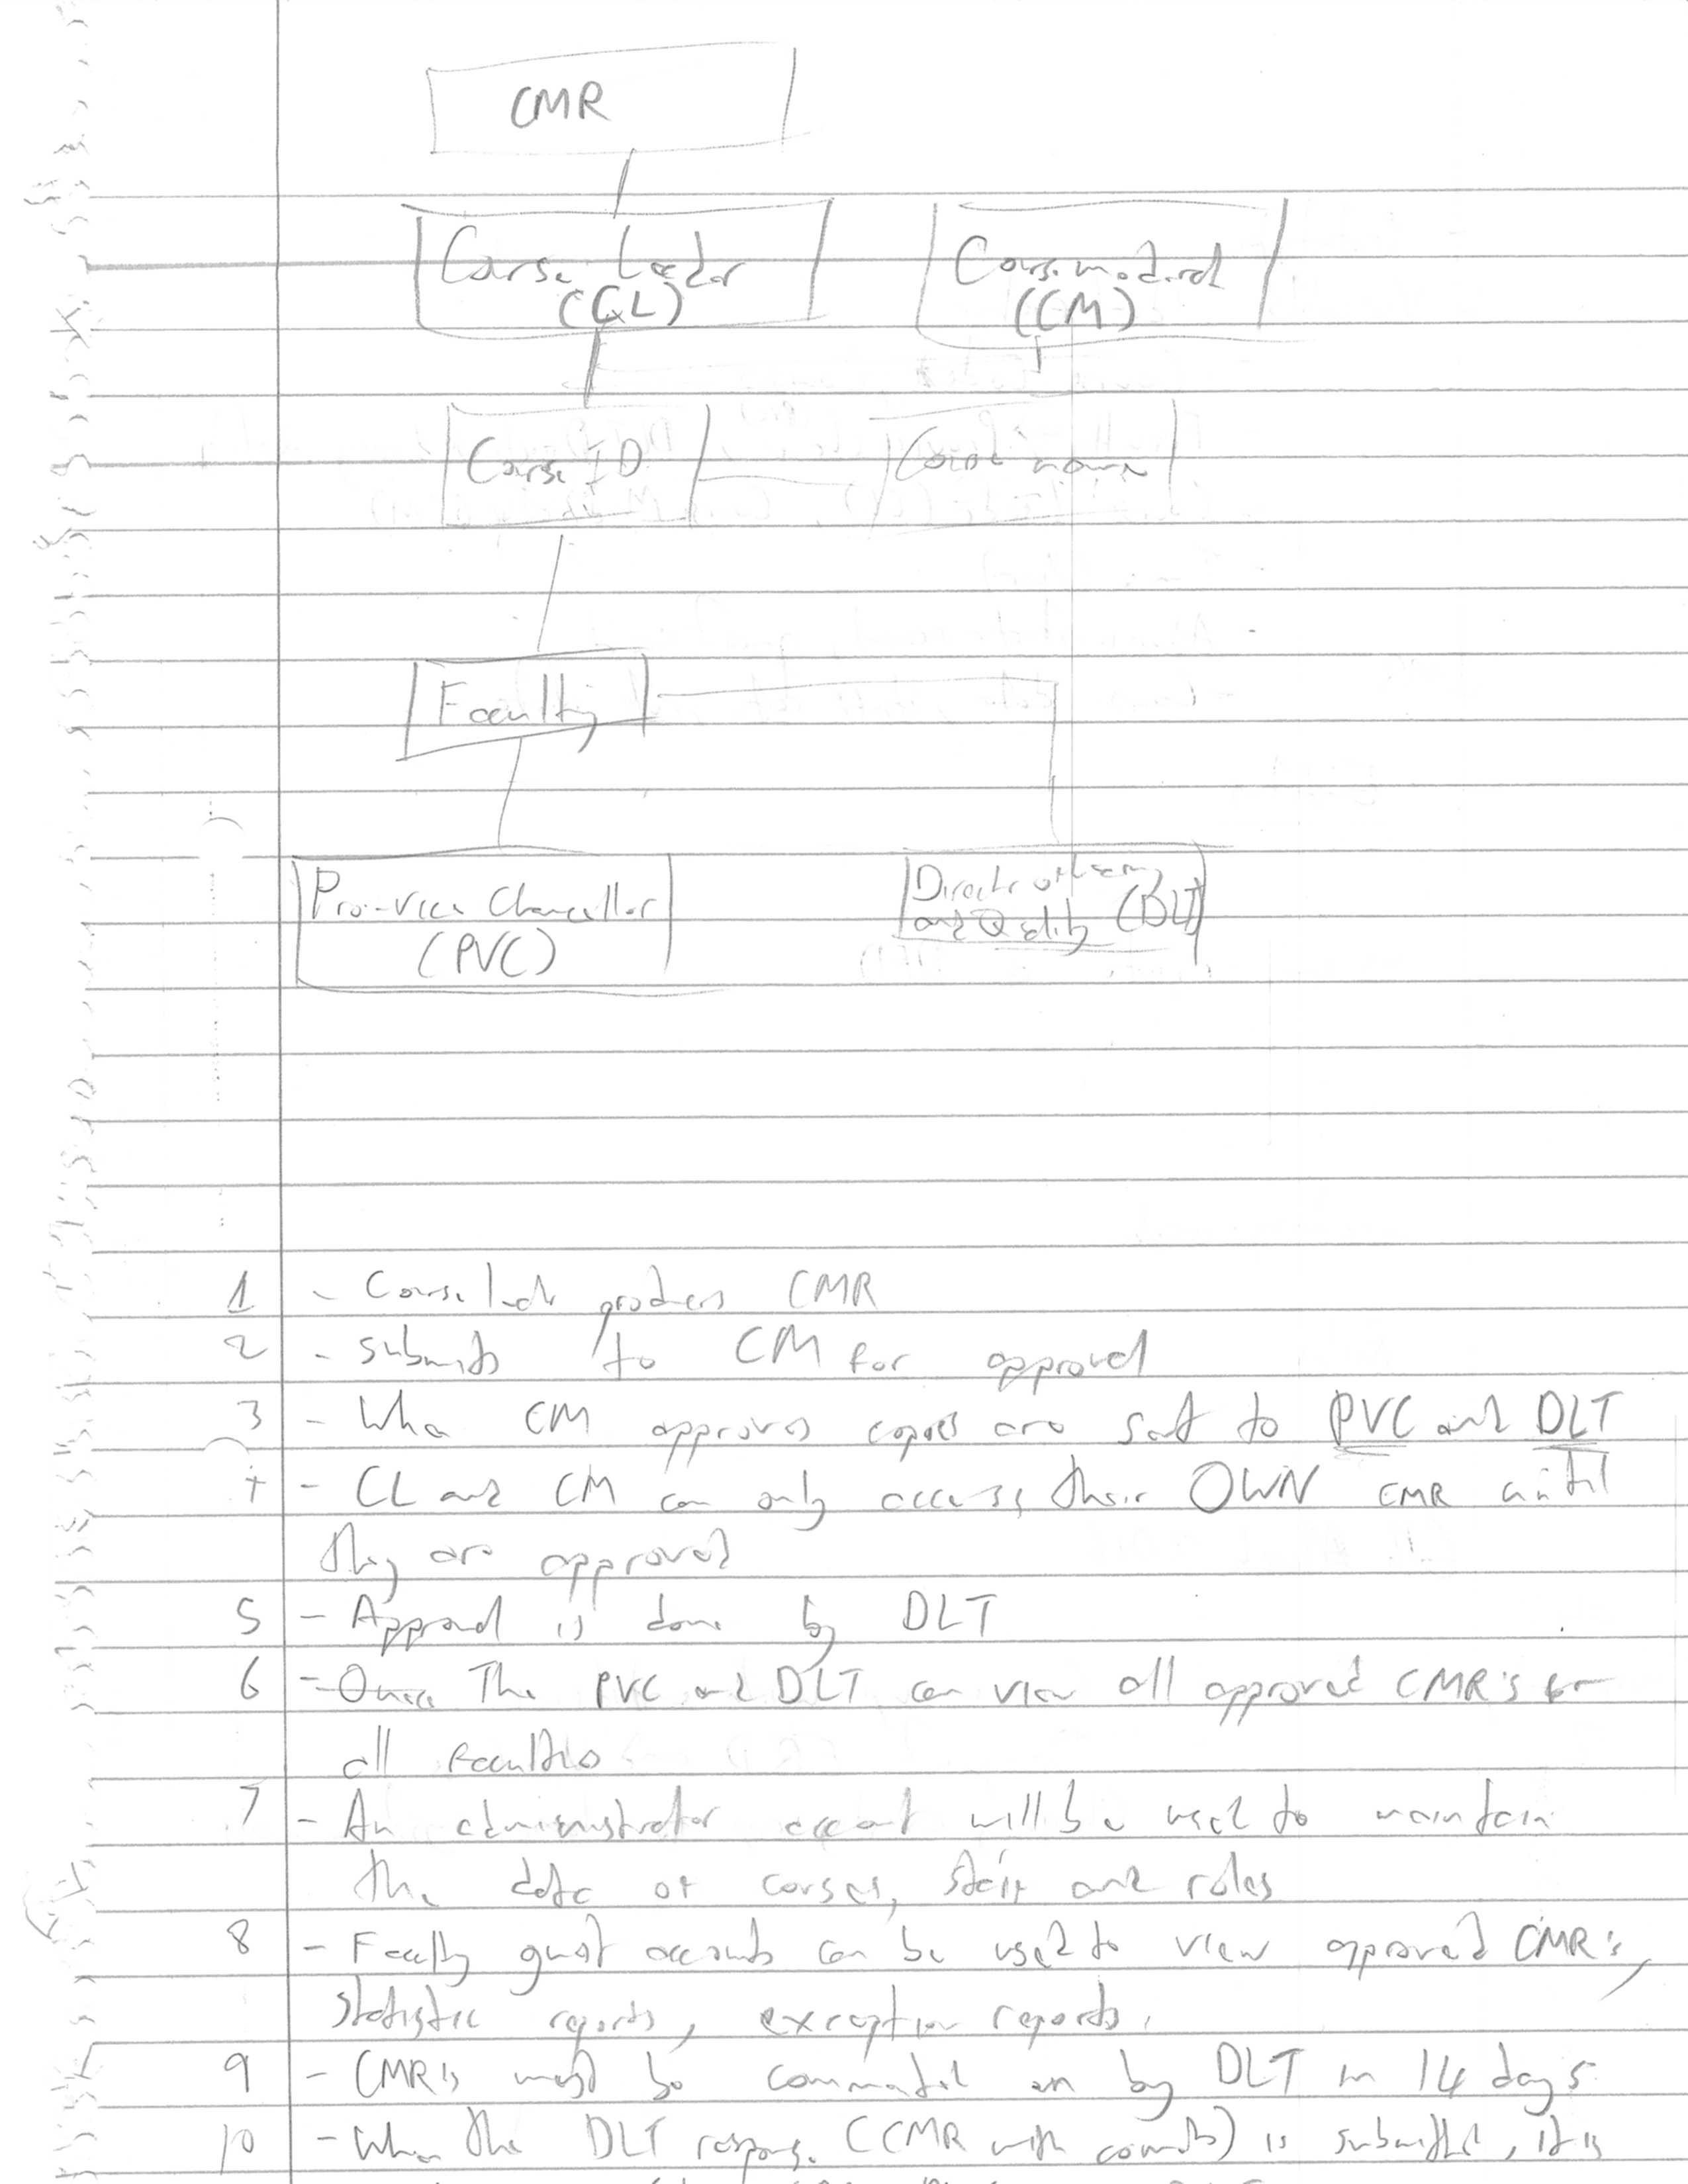 CMR
Course Leader
(CL)
Course moderat
(CM)
Course ID
Course name
Faculty
Pro-vice Chancellor
(PVC)
Director of
and Quality (DLT)
1 - Course leader produces CMR
2 - submits to CM for approval
3 - When CM approves copies are sent to PVC and DLT
4 - CL and CM can only access their OWN CMR until
they are approved
5 - Approval is done by DLT
6 - Once The PVC and DLT can view all approved CMR's for
all faculties
7 - An administrator account will be used to maintain
the data of courses, staff and roles
8 - Faculty guest accounts can be used to view approved CMR's,
statistic reports, exception reports.
9 - CMR's must be commented on by DLT in 14 days
10 - When the DLT respons. (CMR with comments) is submitted, it is